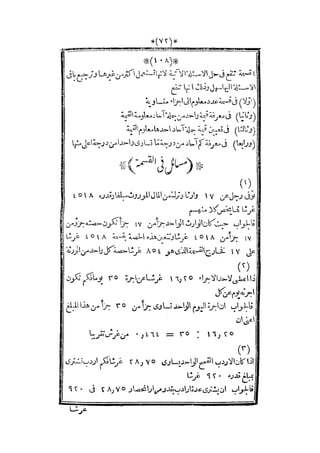 *(٧٢)*
*(١٠٨)*
القسمة تنفع فى حل الاسئلة الآتية لانها تستعمل اكثر من غيرها وترجيع باقى
الاسئلة اليها سهل وذلك انها تنفع
(اولا) فى قسمة عدد معلوم الى اجزاء متساوية
(وثانيا) فى معرفة قيمة واحد من جملة آحاد معلومة القيمة
(وثالثا) فى تعيين قيمة جملة آحاد احدها معلوم القيمة
(ورابعا) فى معرفة كم آحاد من درجة ما تساوى واحدا من درجة اعلى منها
*(مسائل فى القسمة)*
(١)
توفى رجل عن ١٧ وارثا وترك من المال الموروث مبلغا قدره ٤٥١٨
غرشا فما يخص كلا منهم
فالجواب حيث كان الوارث الواحد جزأ من ١٧ جزأ تكون حصته جزأ من
١٧ جزأ من ٤٥١٨ غرشا وتتعين هذه الحصة بقسمة ٤٥١٨ غرشا
على ١٧ فخارج القسمة الذى هو ٨٥٤ غرشا حصة كل واحد من الورثة
(٢)
اذا اعطى لاحد الاجراء ١٦٫٢٥ غرشا عن اجرة ٣٥ يوما فكم تكون
اجرته يوم عن كل
فالجواب ان اجرة اليوم الواحد تساوى جزأ من ٣٥ جزأ من هذا المبلغ
اعنى ان
١٦٫٢٥ : ٣٥ = ٠٫٤٦٤ من غرش تقريبا
(٣)
اذا كان الاردب القمح الواحد يساوى ٢٨٫٧٥ غرشا فكم اردب تشترى
بمبلغ قدره ٩٢٠ غرشا
فالجواب ان يشترى عدة ارادب بقدر مرار انحصار ٢٨٫٧٥ فى ٩٢٠
غرشا